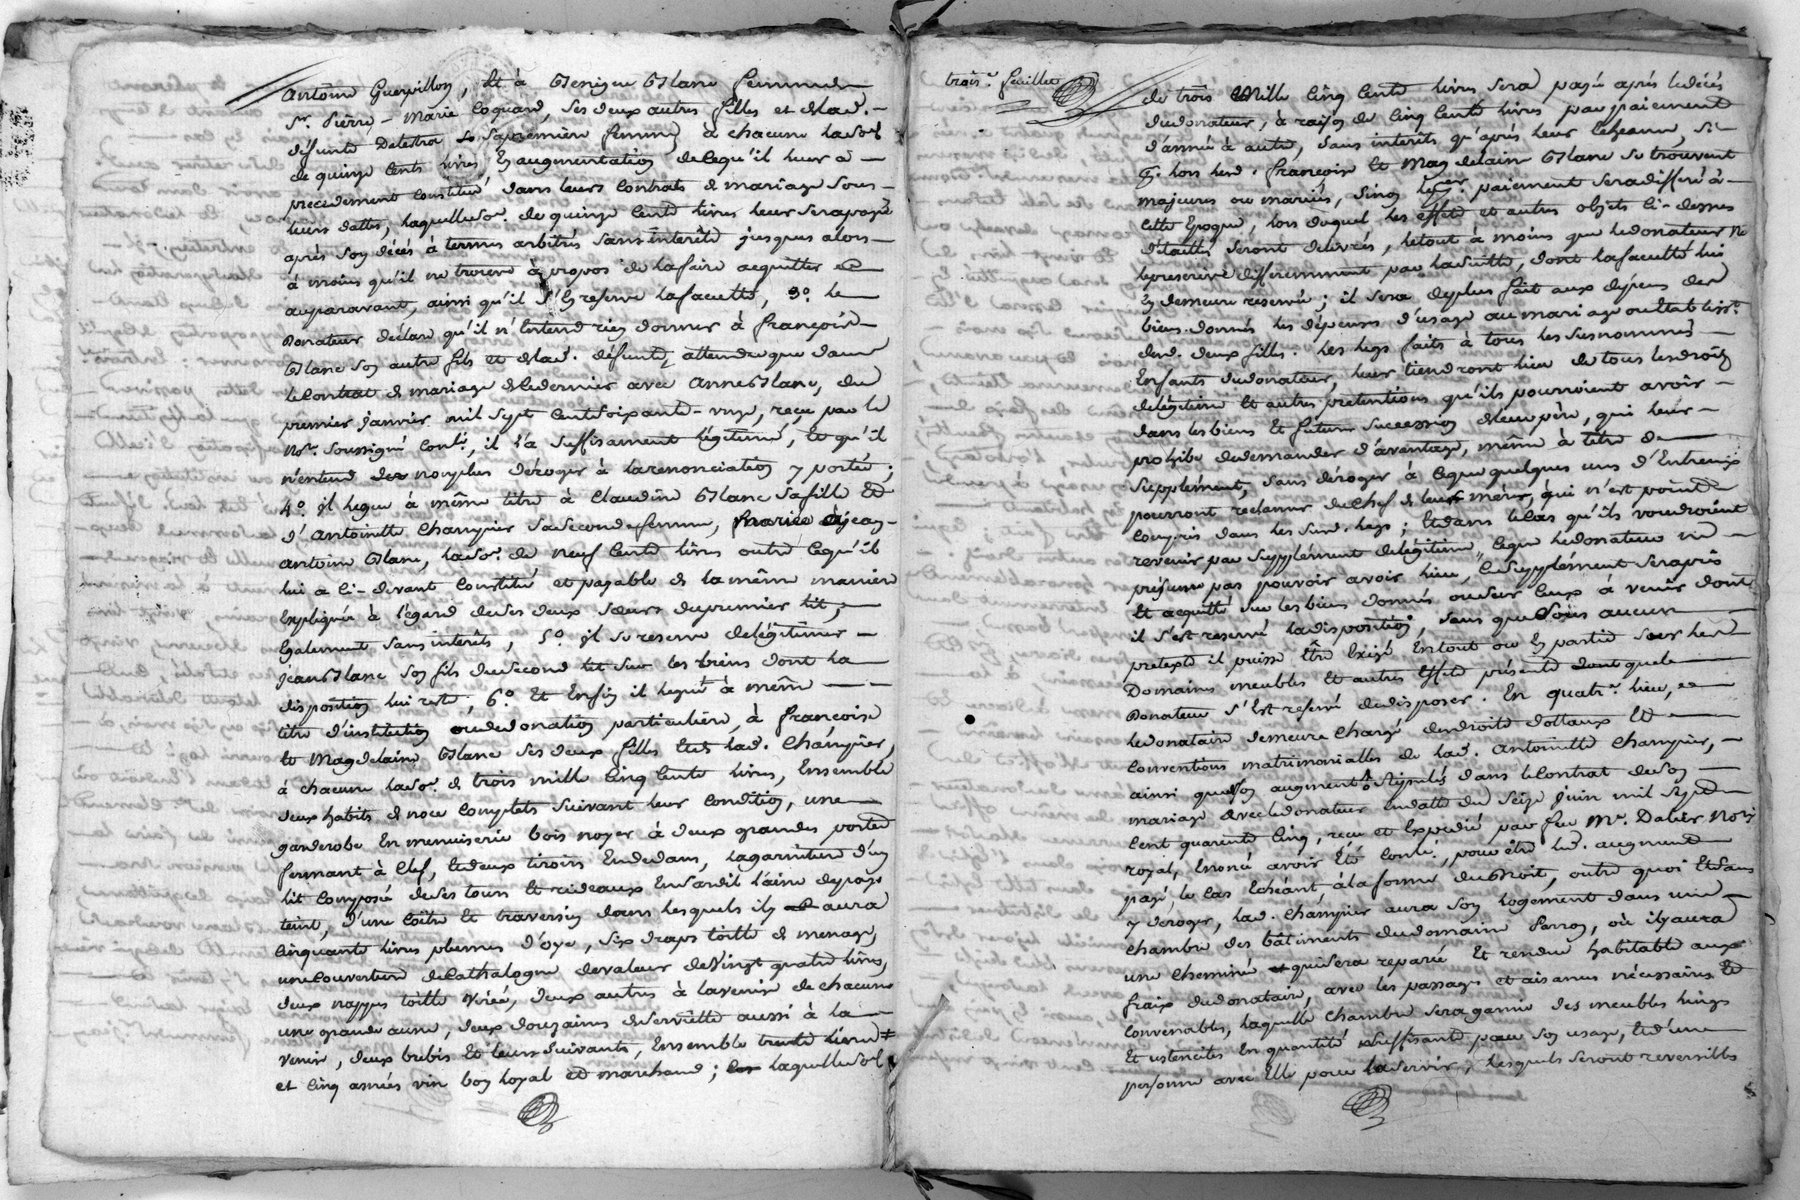 Antoine Guerpillon, Et à Benigne Blanc femme de
Sr. Pierre-Marie Coquard, ses deux autres filles et de lad.
défunte Delestra sa premiere femme à chacune la so.
de quinze cents livres, En augmentation de ce qu'il leur a
precedement constitué dans leurs contrats de mariage sous
leurs dattes, laquelle so. de quinze cents livres leur sera payée
après son décés à termes arbitrés sans intérêts jusques alors
à moins qu'il ne trouve à propos de la faire acquitter
auparavant, ainsi qu'il s'En reserve la faculté, 3º. le
Donateur déclare qu'il n'Entend rien donner à françois
Blanc son autre fils et de lad. défunte, attendu que dans
le Contrat de mariage de ce dernier avec Anne Blanc, du
premier janvier mil sept cent soixante-onze, reçu par le
Nore. soussigné Contlé, il l'a suffisament légitimé, Et qu'il
n'entend non plus déroger à la renonciation y portée;
4º. il legue à même titre à Claudine Blanc sa fille Et
d'Antoinette Champier sa seconde femme, mariée à jean-
Antoine Blanc, la so. de neuf Cents livres outre ce qu'il
lui a Ci-devant Constitué et payable de la même maniere
Expliquée à l'égard de ses deux sœurs du premier lit,
Egalement sans intérêts, 5º. il se reserve de légitimer
jean Blanc son fils du second lit sur les biens dont la
disposition lui reste, 6º. Et Enfin il legue à même
titre d'institution ou de donation particuliere, à françoise
Et Magdelaine Blanc ses deux filles Et de lad. Champier,
à chacune la so. de trois mille Cinq Cents livres, Ensemble
deux habits de noce Complets suivant leur Condition, une
garderobe En menuiserie bois noyer à deux grandes portes
fermant à Clef, Et deux tiroirs En dedans, la garniture d'un
lit Composé de ses tour Et rideaux En Cardil laine de pays
teint, d'une Coitre Et traversin dans lesquels il y aura
Cinquante livres plumes d'oye, six draps toille de menage,
une Couverture de Cathalogne de valeur de Vingt quatre livres,
deux nappes toille, deux autres à la venise de chacune
une grande aune, deux douzaines de serviettes aussi à la
venise, deux brebis Et leurs suivants, Ensemble trente livres
et Cinq asnées vin bon loyal Et marchand; laquelle so.
trois.e feuillet
de trois Mille Cinq Cents livres sera payée après le décés
du donateur, à raison de Cinq Cents livres par paiement
d'année à autre, sans intérêts qu'après leur Echeance, si
lors lesd. françoise Et Magdelaine Blanc se trouvent
majeures ou mariées, sinon paiement sera differé à
Cette Epoque, lors duquel les effets et autres objets Ci-dessus
détaillés seront délivrés, le tout à moins que le donateur ne
le prescrive differemment par la suitte, dont la faculté lui
En demeure reservée; il sera de plus fait aux dépens des
biens donnés les dépenses d'usage au mariage ou Etablisst.
desd. deux filles. Les legs faits à tous les susnommés
Enfants du donateur, leur tiendront lieu de tous les droits
de légitime Et autres pretentions qu'ils pourroient avoir
dans les biens Et future succession de leur père, qui leur
prohibe de demander d'avantage, même à titre de
supplément, sans déroger à ce que quelques uns d'Entreux
pourront reclamer du Chef de leurs méres, qui n'est point
Compris dans les susd. legs; Et dans le Cas qu'ils voudroient
revenir par supplément de légitime, Ce que le donateur ne
présume pas pouvoir avoir lieu, Ce supplément sera pris
Et acquitté sur les biens donnés ou sur Ceux à venir dont
il s'est reservé la disposition, sans que sous aucun
pretexte il puisse Etre Exigé En tout ou En partie sur les
Domaine meubles Et autres Effets présents dont que le
Donateur s'Est reservé de disposer. En quatr.e lieu,
le donataire demeure Chargé des droits dottaux Et
Conventions matrimonialles de lad. Antoinette Champier,
ainsi que son augment stipulés dans le Contrat de son
mariage avec le donateur En datte du seize juin mil sept
Cent quarante Cinq, reçu et Expedié par feu Me. Daber Nore.
royal, Enoncé avoir Eté Contlé, pour être led. augment
payé, le Cas Echéant à la forme du droit, outre quoi Et sans
y déroger, lad. Champier aura son logement dans une
chambre des bâtiments du domaine Perron, où il y aura
une Cheminée qui sera reparée Et rendue habitable aux
fraix du donataire, avec les passages et aisances nécessaires Et
Convenables, laquelle Chambre sera garnie des meubles linges
Et ustenciles En quantité suffisante pour son usage, Et d'une
personne avec Elle pour la servir, lesquels seront reversibles